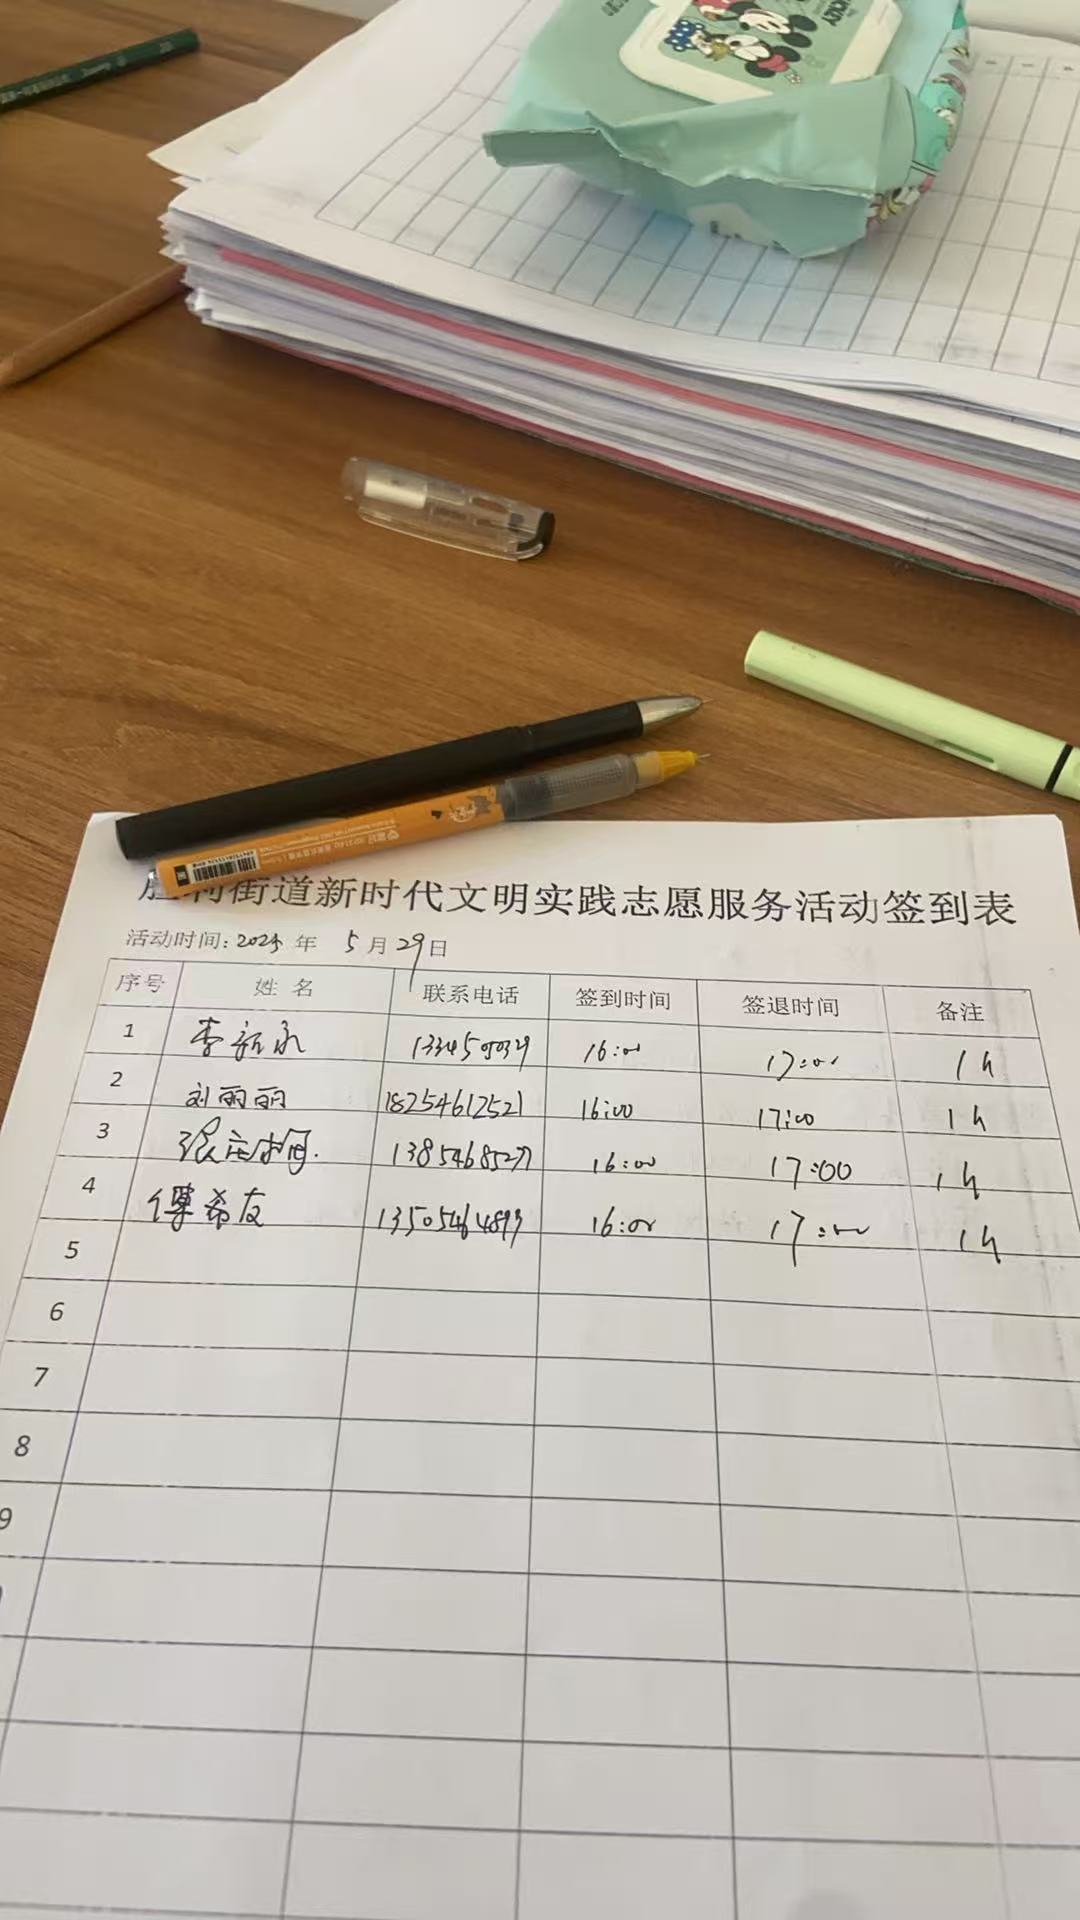 MICKEY
胜利街道新时代文明实践志愿服务活动签到表
活动时间: 2025 年 5 月 29 日
序号 姓 名 联系电话 签到时间 签退时间 备注
1 李新永 16:00 17:00 1h
2 刘丽丽 18254612521 16:00 17:00 1h
3 16:00 17:00 1h
4 傅希友 13505464897 16:00 17:00 1h
5
6
7
8
9